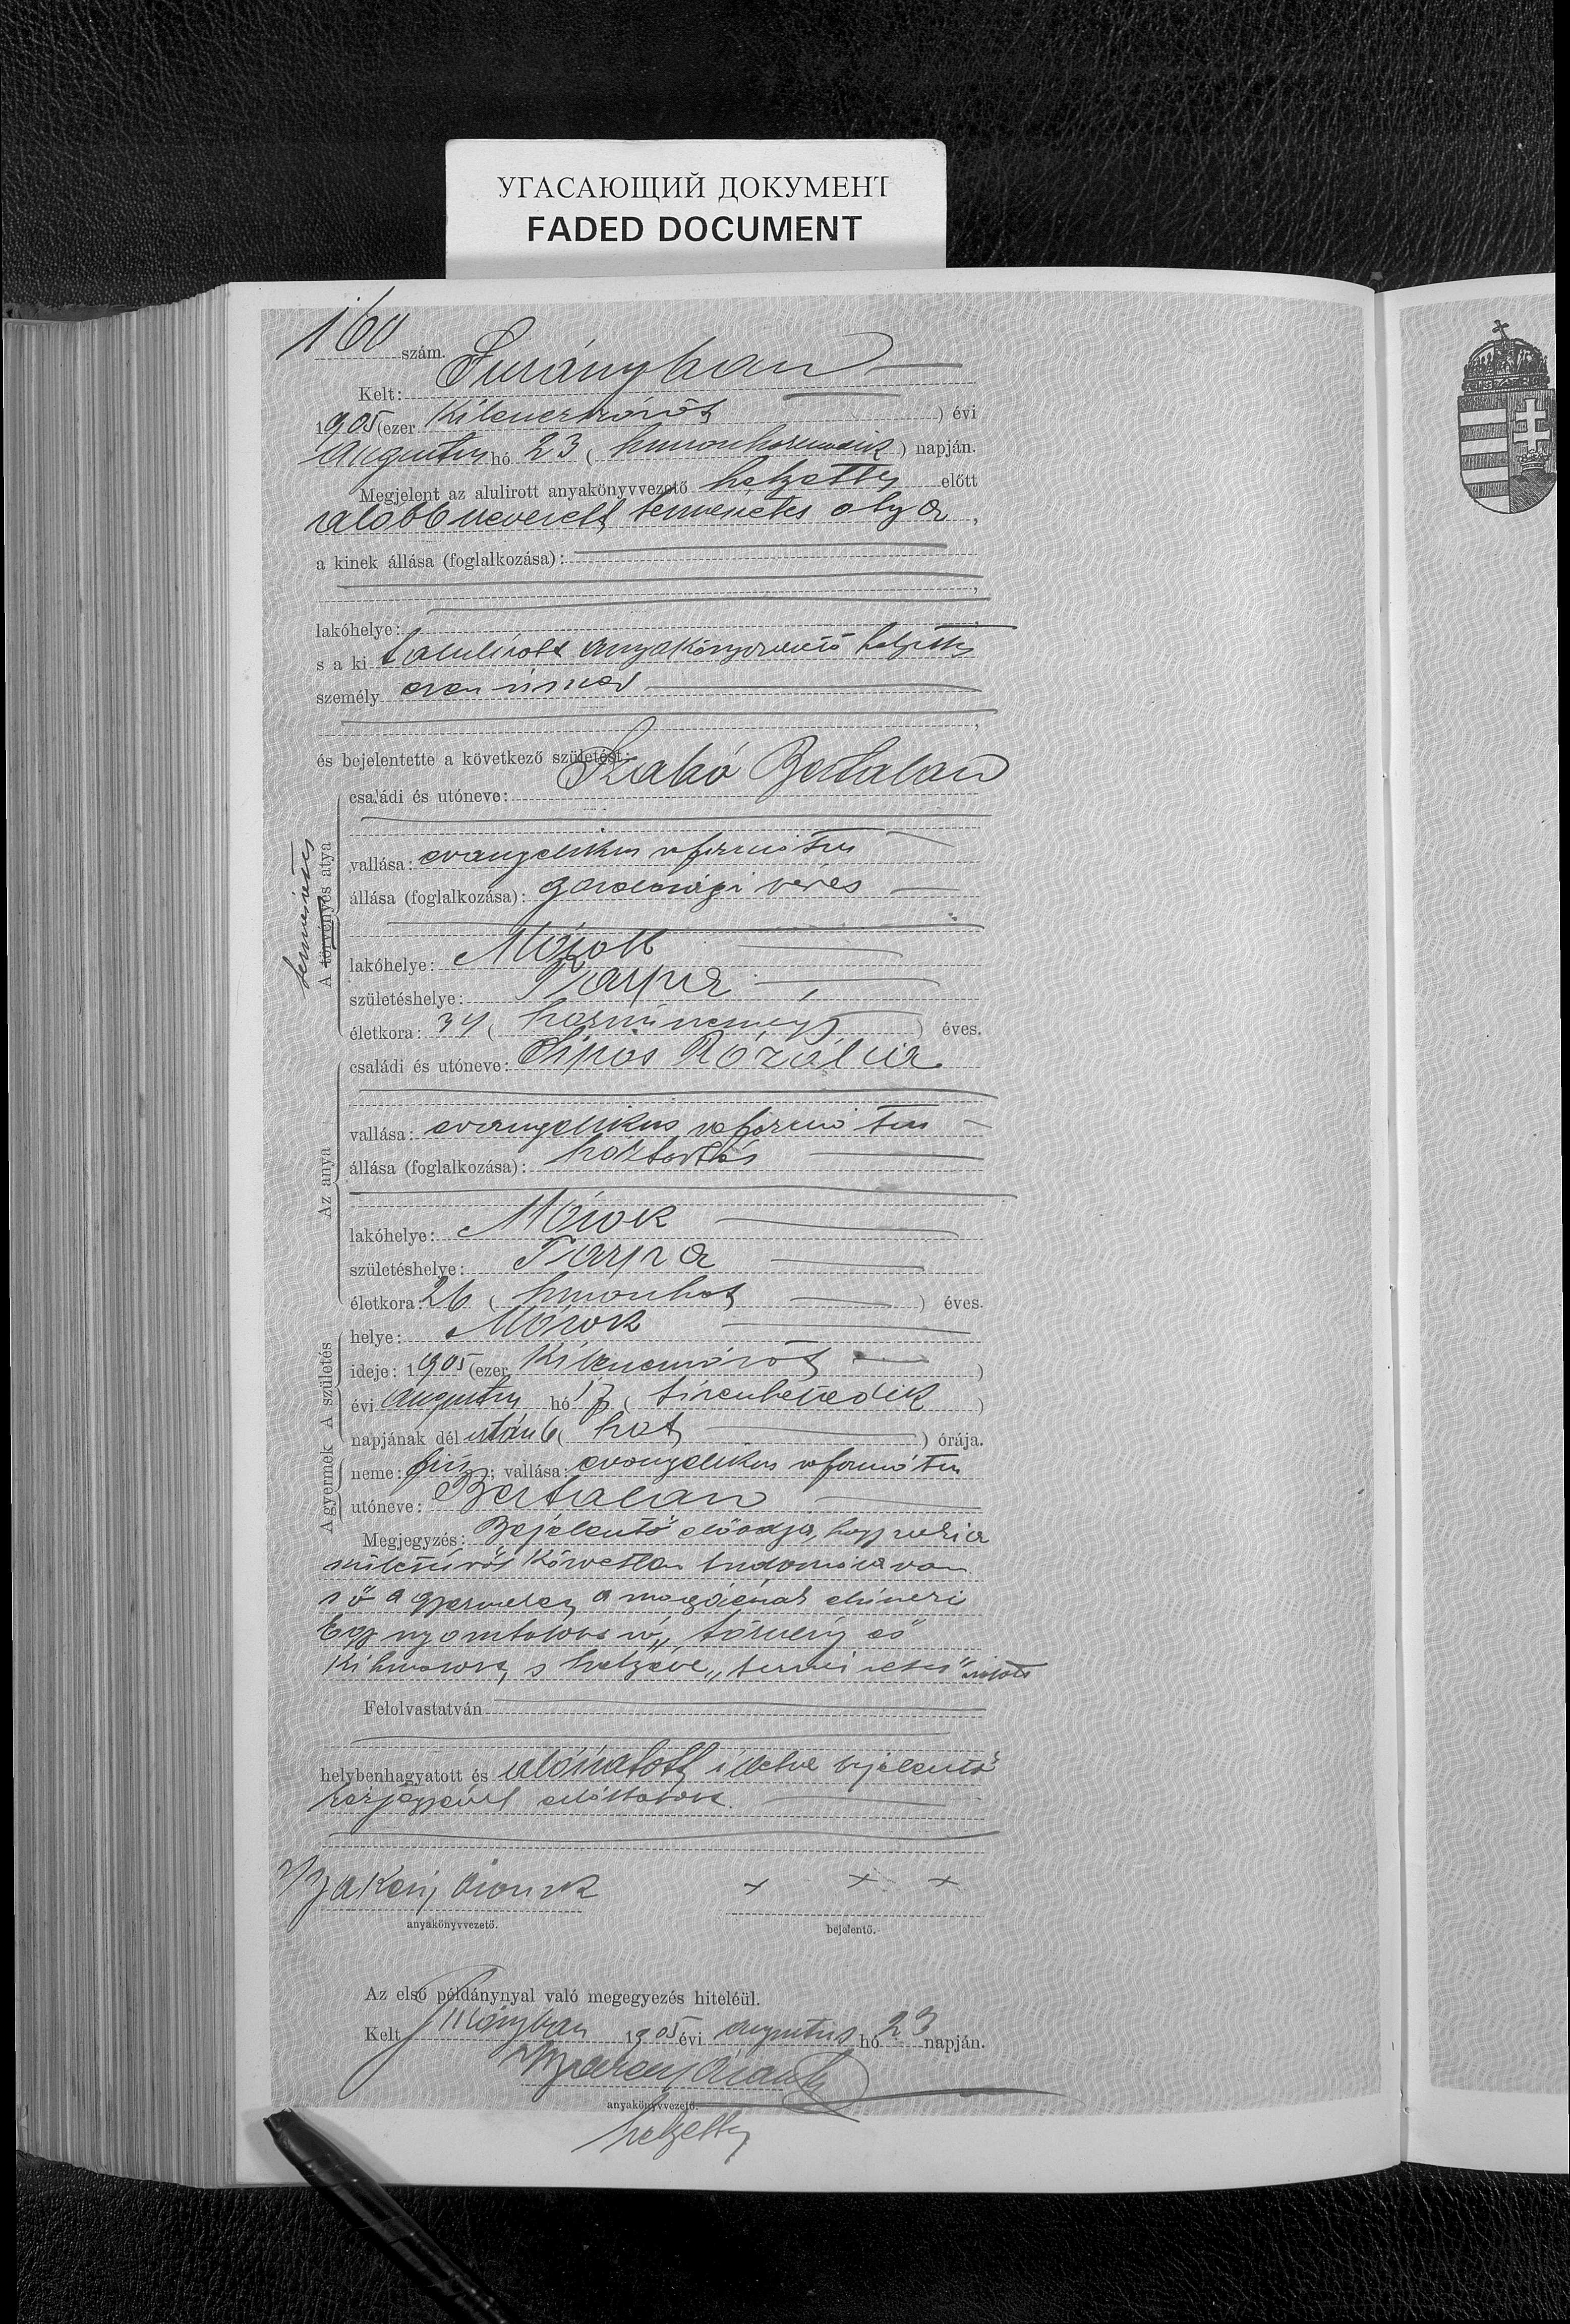 УГАСАЮЩИЙ ДОКУМЕНТ
FADED DOCUMENT
160 szám.
Kelt: Surányban
1905 (ezer kilencszázöt) évi
Augusztus hó 23 (huszonharmadik) napján.
Megjelent az alulirott anyakönyvvezető helyettes előtt
alább nevezett természetes atya,
a kinek állása (foglalkozása):
lakóhelye:
s a ki alulirott anyakönyvvezető helyettes
személy
és bejelentette a következő születést:
családi és utóneve: Szabó Bertalan
természetes
A törvényes atya
vallása: evangelikus református
állása (foglalkozása): gazdasági béres
lakóhelye:
születéshelye: Tarpa
életkora: 34 (harmincnégy) éves.
Az anya
családi és utóneve: Sipos Rozália
vallása: evangelikus református
állása (foglalkozása): háztartás
lakóhelye:
születéshelye: Tarpa
életkora: 26 (huszonhat) éves.
A születés
helye:
ideje: 1905 (ezer kilencszázöt)
évi augusztus hó 17 (tizenhetedik)
napjának dél után 6 (hat) órája.
A gyermek
neme: fiú; vallása: evangelikus református
utóneve: Bertalan
Megjegyzés: Bejelentő előadja, hogy
születésről közvetlen tudomása van
s ő a gyermeket a magáénak elismeri
Egy nyomtatott szó „törvényes"
s helyébe „természetes" iratott
Felolvastatván
helybenhagyatott és aláíratott, illetve bejelentő
kézjegyével elláttatott.
anyakönyvvezető.
+ + +
bejelentő.
Az első példánynyal való megegyezés hiteléül.
Kelt Surányban 1905 évi augusztus hó 23 napján.
anyakönyvvezető.
helyettes